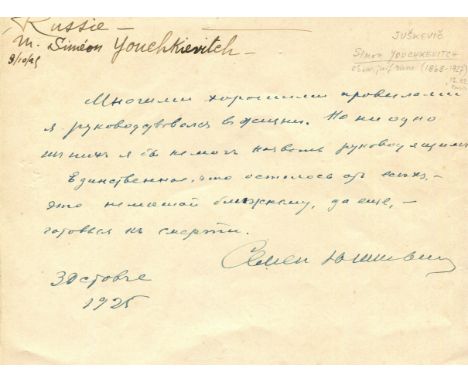 Russie
M. Siméon Youchkievitch
9/10/25
JUŠKEVIČ
Simon YOUCHKEVITCH
(1868-1927)
Многими хорошими правилами
я руководствовался в жизни. Но ни одно
из них я бы не мог назвать руководящим.
Единственное, что осталось от них, –
это не мешай ближнему, да еще, –
готовься к смерти.
Семен Юшкевич
1925